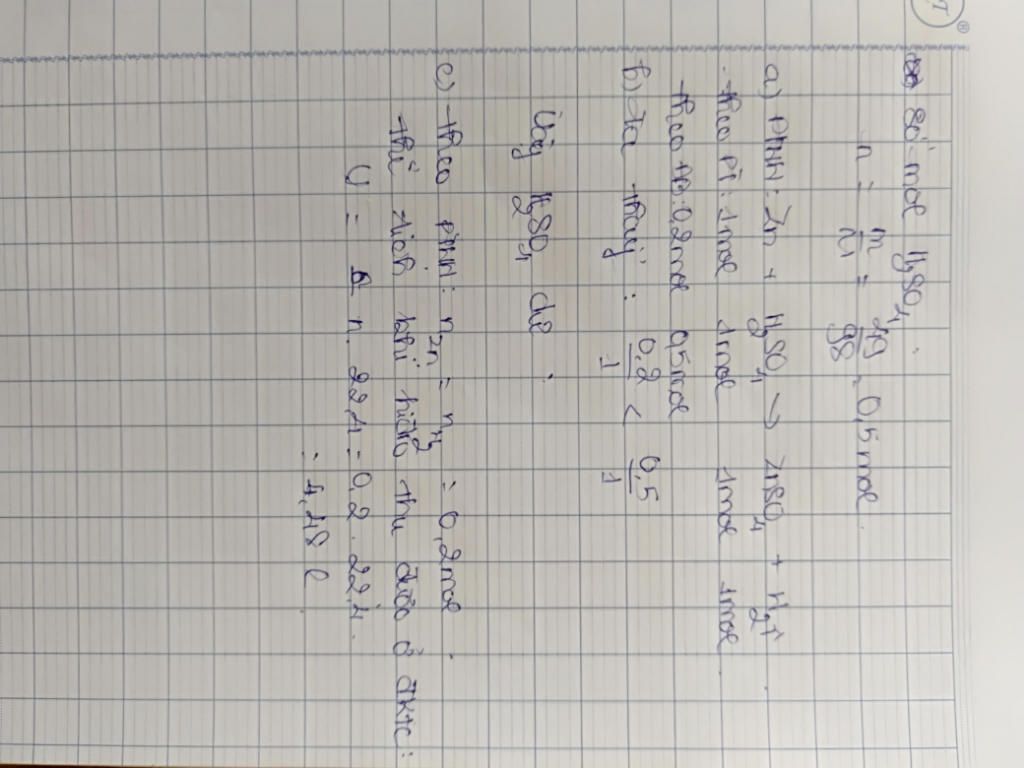 Số mol H2SO4.
n = m/M = 49/98 = 0,5 mol.
a) PTHH: Zn + H2SO4 → ZnSO4 + H2↑
theo PT: 1mol 1mol 1mol 1mol
theo ĐB: 0,2mol 0,5mol
b) Ta thấy: 0,2/1 < 0,5/1
Vậy H2SO4 dư.
c) theo PTHH: nZn = nH2 = 0,2mol.
thể tích khí hiđro thu được ở đktc:
V = n. 22,4 = 0,2 . 22,4.
= 4,48 l